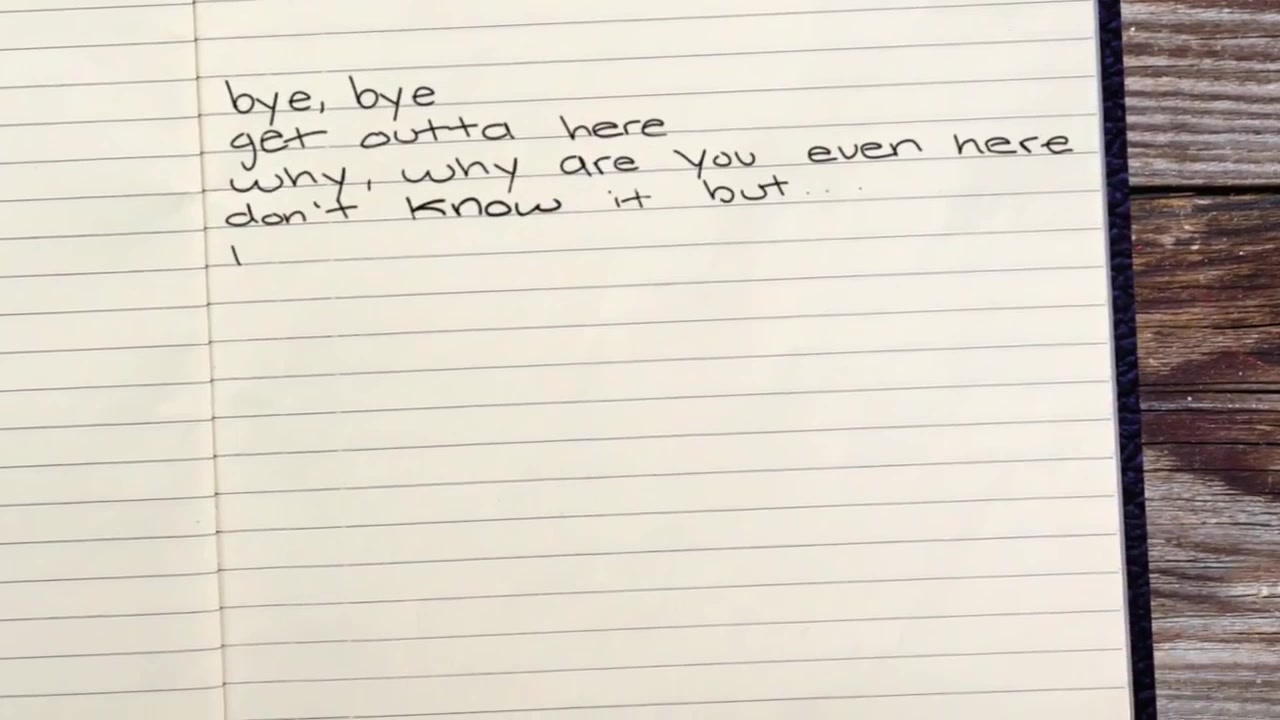 bye, bye
get outta here
why, why are you even here
don't know it but...